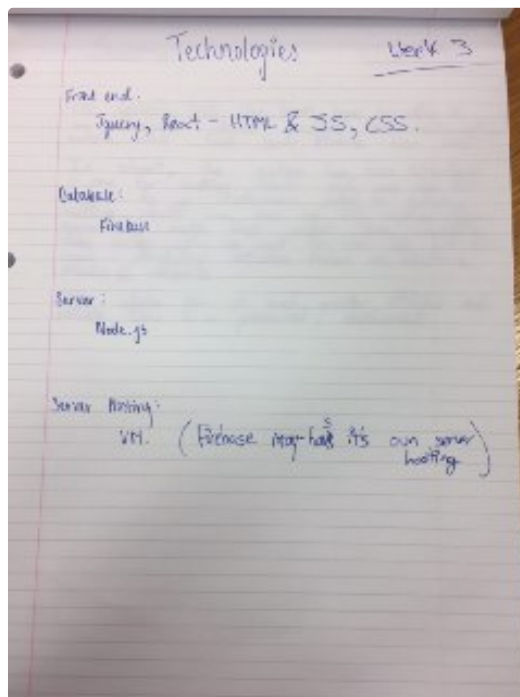 Technologies Week 3
Front end:
Jquery, React - HTML & JS, CSS.
Database:
Firebase
Server:
Node.js
Server Hosting:
VM. (Firebase has it's own server
hosting)